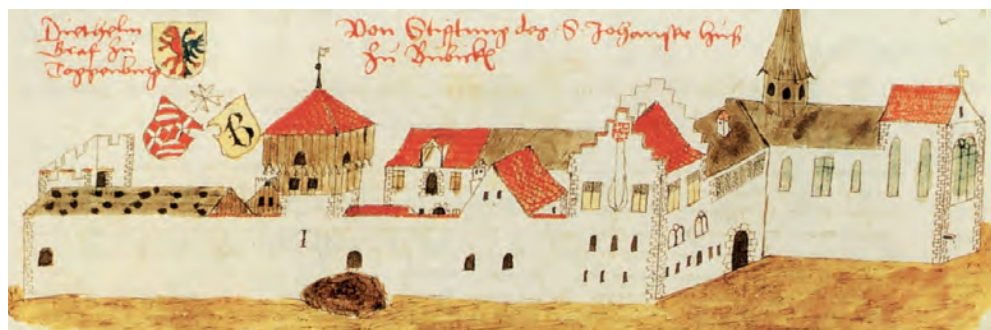 Diethelm
Graf zu
Toggenburg
Von Stifftung des S. Johanser huß
Zů Bubickē
B
I